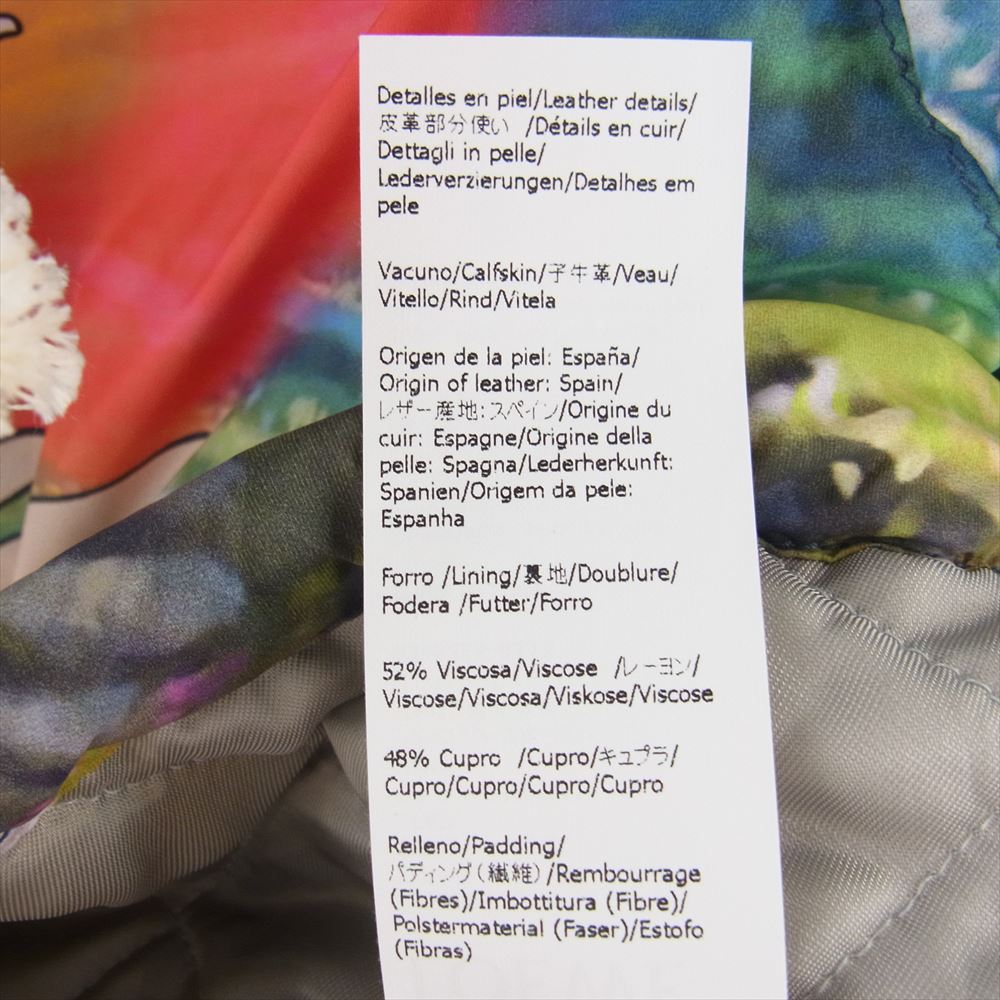 Detalles en piel/Leather details/
皮革部分使い /Détails en cuir/
Dettagli in pelle/
Lederverzierungen/Detalhes em
pele
Vacuno/Calfskin/子牛革/Veau/
Vitello/Rind/Vitela
Origen de la piel: España/
Origin of leather: Spain/
レザー産地:スペイン/Origine du
cuir: Espagne/Origine della
pelle: Spagna/Lederherkunft:
Spanien/Origem da pele:
Espanha
Forro /Lining/裏地/Doublure/
Fodera /Futter/Forro
52% Viscosa/Viscose /レーヨン/
Viscose/Viscosa/Viskose/Viscose
48% Cupro /Cupro/キュプラ/
Cupro/Cupro/Cupro/Cupro
Relleno/Padding/
パディング(繊維)/Rembourrage
(Fibres)/Imbottitura (Fibre)/
Polstermaterial (Faser)/Estofo
(Fibras)